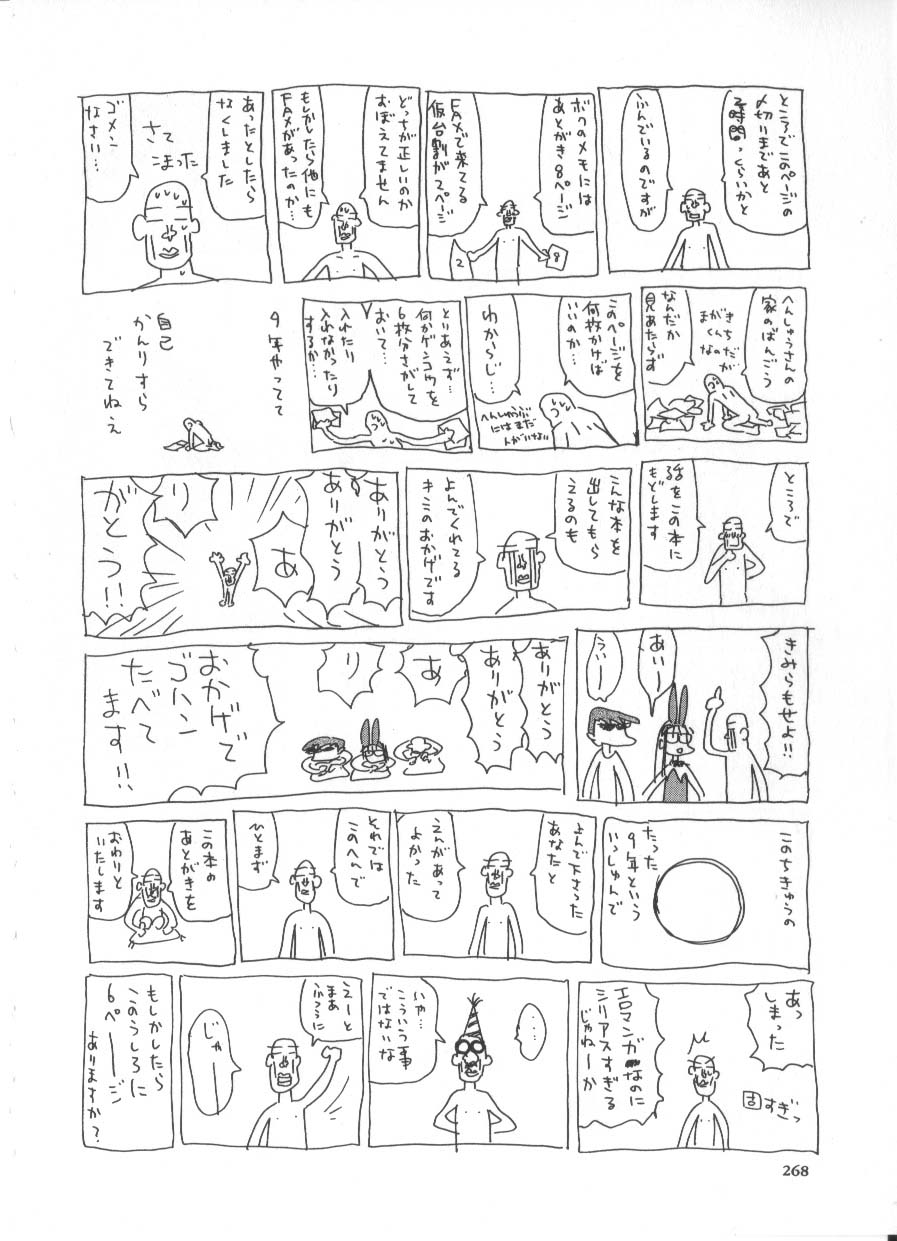 ところでこのページの
〆切りまであと
2時間っくらいかと
ふんでいるのですが
ボクのメモには
あとがき8ページ
FAXで来てる
仮台割が2ページ
2
8
どっちが正しいのか
おぼえてません
もしかしたら他にも
FAXがあったのか…
あったとしたら
なくしました
さて
こまった
ゴメン
なさい…
へんしゅうさんの
家のばんごう
きちだが
まがくんなの
なんだか
見あたらず
このページを
何枚かけば
いいのか…
わからじ…
へんしゅうぶ
にはまだ
人がいない
とりあえず…
何かゲンコウを
6枚分さがして
おいて…
入れたり
入れなかったり
するか…
9年やってて
自己
かんりすら
できてねぇ
ところで
話をこの本に
もどします
こんな本を
出してもら
えるのも
よんでくれてる
キミのおかげです
ありがとう
ありがとう
あ
り
がとう!!
きみらもせよ!!
あいー
うぃー
ありがとう
ありがとう
あ
り
おかげで
ゴハン
たべて
ます!!
このちきゅうの
たった
9年という
いっしゅんで
よんで下さった
あなたと
えんがあって
よかった
それでは
このへんで
ひとまず
この本の
あとがきを
おわりと
いたします
あっ
しまった
固すぎっ
エロマンガなのに
シリアスすぎる
じゃねーか
……
いや…
こういう事
ではないな
えーと
まあ
ふつうに
じゃ
もしかしたら
このうしろに
6ページ
ありますか?
268